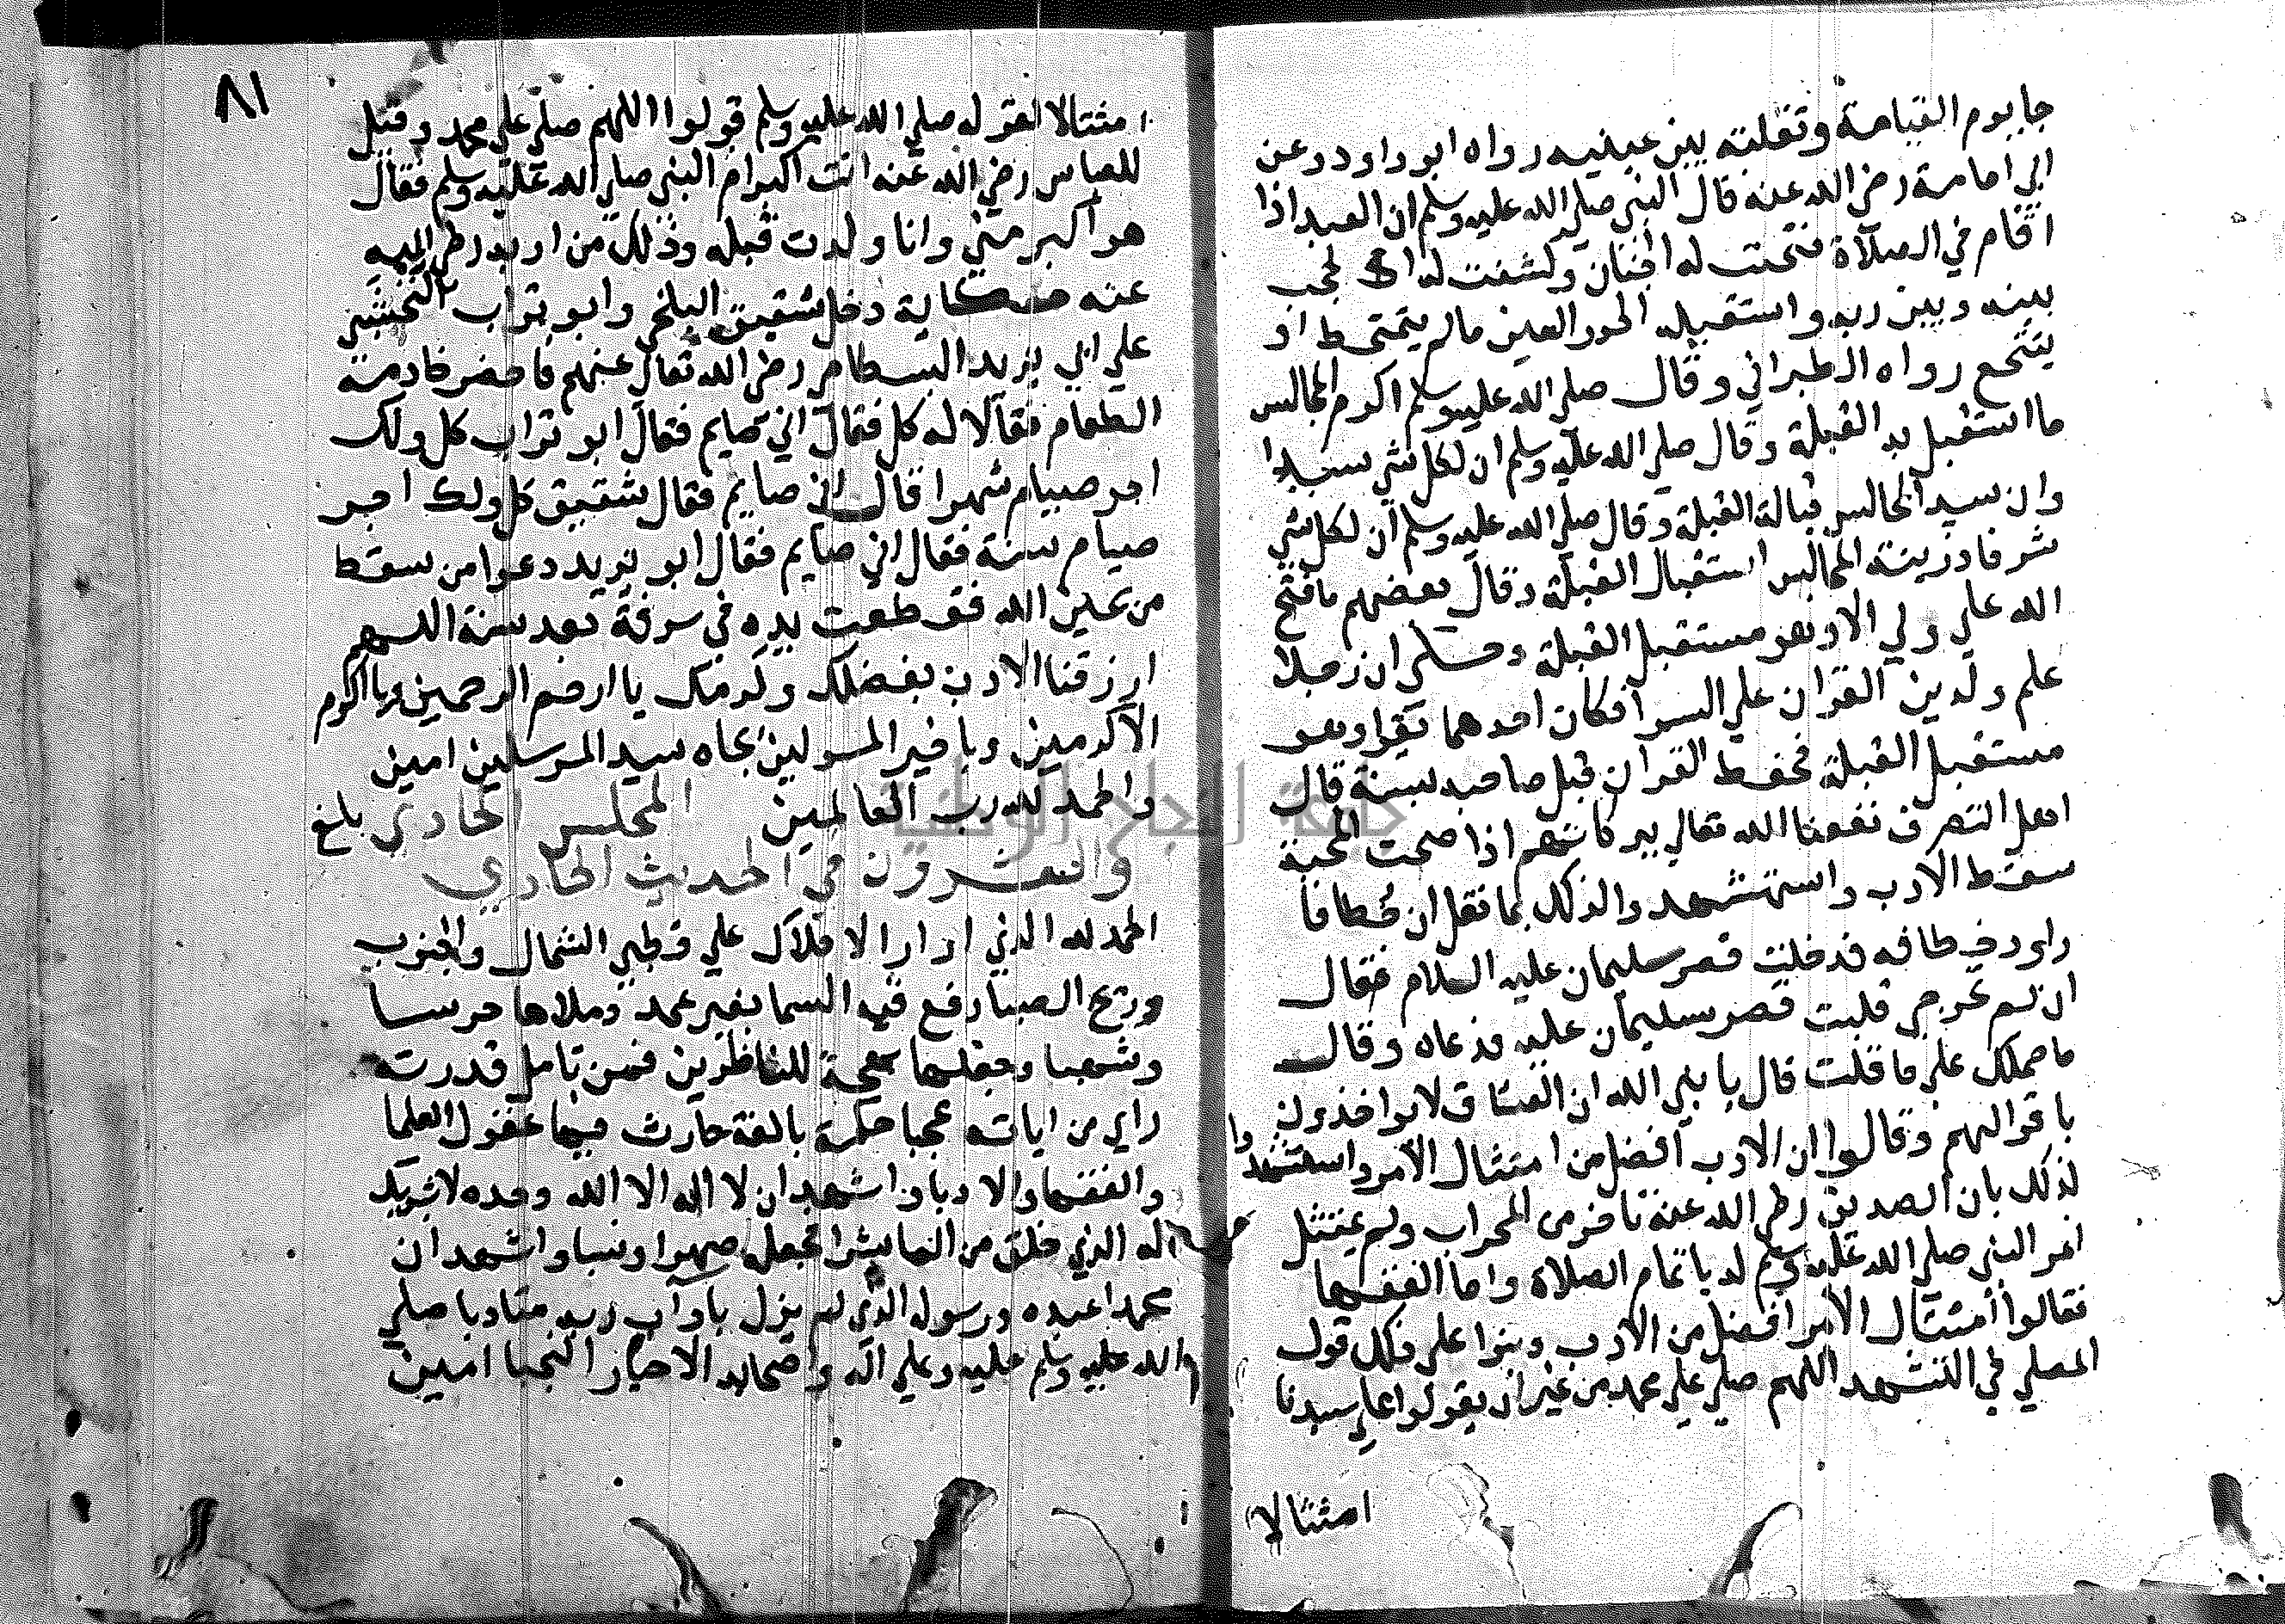 جا يوم القيامة وتفلته بين عينيه رواه ابو داود وعن
ابي امامة رضي الله عنه قال النبي صلي الله عليه وسلم ان العبد اذا
اقام في الصلاة فتحت له الجنان وكشفت له الحجب
بينه وبين ربه واستقبله الحور العين مالم يتمخط او
يتنخع رواه الطبراني وقال صلي الله عليه وسلم اكرم المجالس
ما استقبل به القبلة وقال صلي الله عليه وسلم ان لكل شي سيدا
وان سيد المجالس قبالة القبلة وقال صلي الله عليه وسلم ان لكل شي
شرفا وزينة المجالس استقبال القبلة وقال بعضهم ما فتح
الله علي ولي الا وهو مستقبل القبلة وحكي ان رجلا
علم ولدين القران علي السوا فكان احدهما يقرا وهو
مستقبل القبلة فحفظ القران قبل صاحبه بسنة قال
اهل التصرف نفعنا الله تعالي ببركاتهم اذا صحت المحبة
سقط الادب واستشهد والذلك بما نقل ان خطافا
راود خطافه فدخلت قصر سليمان عليه السلام فقال
ان لم تخرجي قلبت قصر سليمان عليه فدعاه وقال
ما حملك علي ما قلت قال يا نبي الله ان العشاق لا يواخذون
باقوالهم وقالوا ان الادب افضل من امتثال الامر واستشهدوا
لذلك بان الصديق رضي الله عنه تاخر من المحراب ولم يمتثل
امر النبي صلي الله عليه وسلم له باتمام الصلاة واما الفقها
فقالوا امتثال الامر افضل من الادب وبنوا علي ذلك قول
المصلي في التشهد اللهم صلي علي محمد من غير ان يقولوا علي سيدنا
امتثالا
٨١
امتثالا لقوله صلي الله عليه وسلم قولوا اللهم صلي علي محمد وقيل
للعباس رضي الله عنه انت اكبر ام النبي صلي الله عليه وسلم فقال
هو اكبر مني وانا ولدت قبله وذلك من ادبه رضي الله
عنه حكاية دخل شقيق البلخي وابو تراب النخشبي
علي ابي يزيد البسطامي رضي الله تعالي عنهم فاحضر خادمه
الطعام فقالا له كل فقال اني صايم فقال ابو تراب كل ولك
اجر صيام شهرا قال اني صايم فقال شقيق كل ولك اجر
صيام سنة فقال اني صايم فقال ابو يزيد دعوا من سقط
من عين الله فقطعت يده في سرقة بعد سنة اللهم
ارزقنا الادب بفضلك وكرمك يا ارحم الرحمين ويا اكرم
الاكرمين ويا خير المسولين بجاه سيد المرسلين امين
والحمد لله رب العالمين المجلس الحادي بلغ
والعشرون في الحديث الحادي
الحمد لله الذي ادار الافلاك علي قطبي الشمال والجنوب
وريح الصبا رفع فيه السما بغير عمد وملاها حرسا
وشهبا وجعلها بهجة للناظرين فمن تامل قدرته
راي من اياته عجبا حكمة بالغة حارت فيها عقول العلما
والفقها والادبا واشهد ان لا اله الا الله وحده لا شريك
له الذي خلق من الما بشرا فجعله صهرا ونسبا واشهد ان
محمدا عبده ورسوله الذي لم يزل باداب ربه متادبا صلي
الله عليه وسلم عليه وعلي اله واصحابه الاخيار النجبا امين